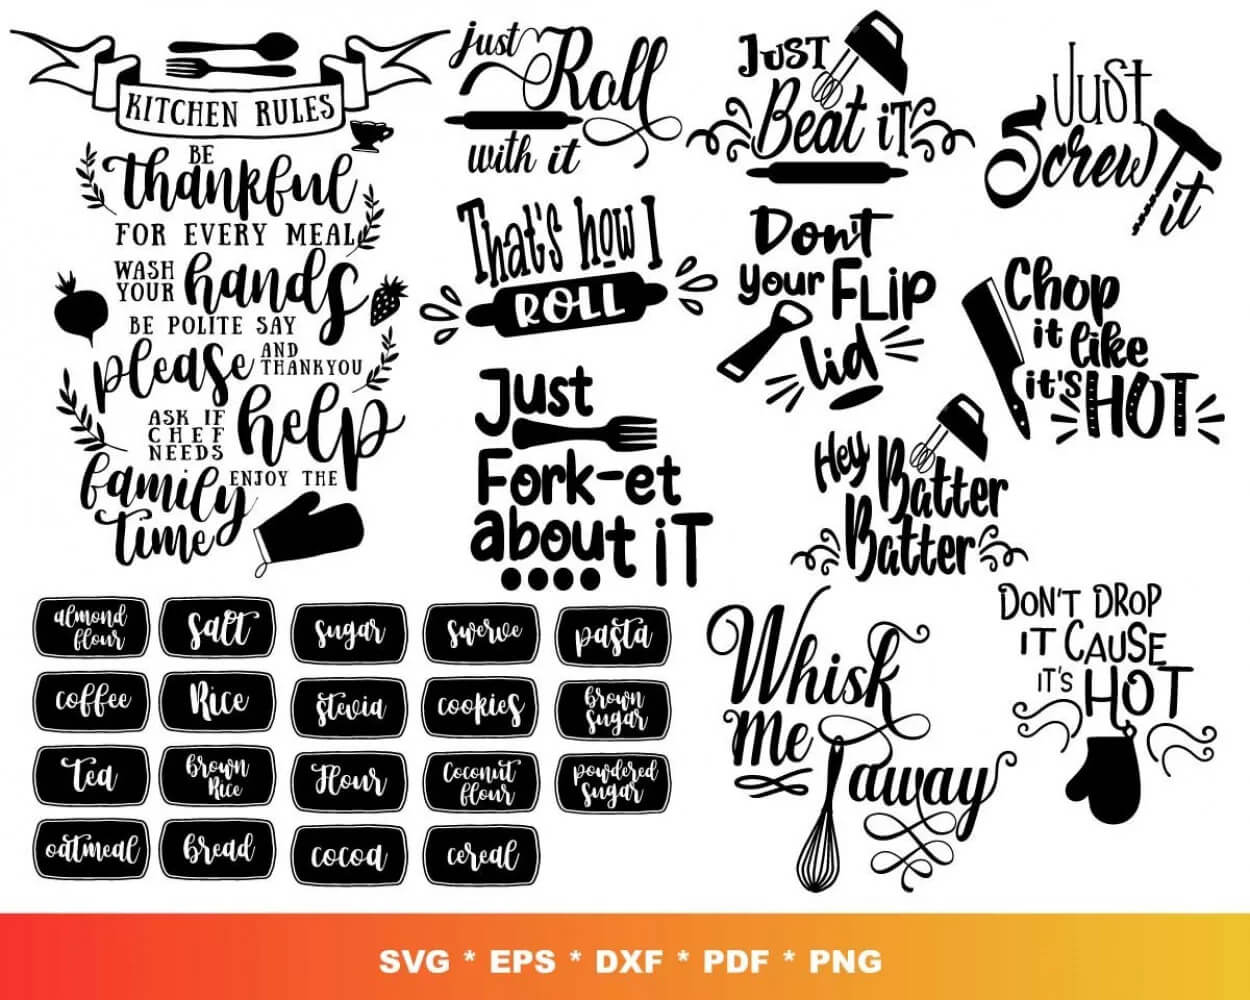 KITCHEN RULES
BE
thankful
FOR EVERY MEAL
WASH YOUR hands
BE POLITE SAY
please AND THANKYOU
ASK IF CHEF NEEDS help
family ENJOY THE
time
just Roll
with it
Just
Beat it
Just
Screw it
That's how I
ROLL
Don't
your FLip
lid
Chop
it like
it's HOT
Just
Fork-et
about iT
Hey Batter
Batter
Whisk
Me
away
DON'T DROP
IT CAUSE
IT'S HOT
almond
flour
salt
sugar
swerve
pasta
coffee
Rice
stevia
cookies
brown
sugar
Tea
brown
Rice
Flour
Coconut
flour
powdered
sugar
oatmeal
bread
cocoa
cereal
SVG * EPS * DXF * PDF * PNG